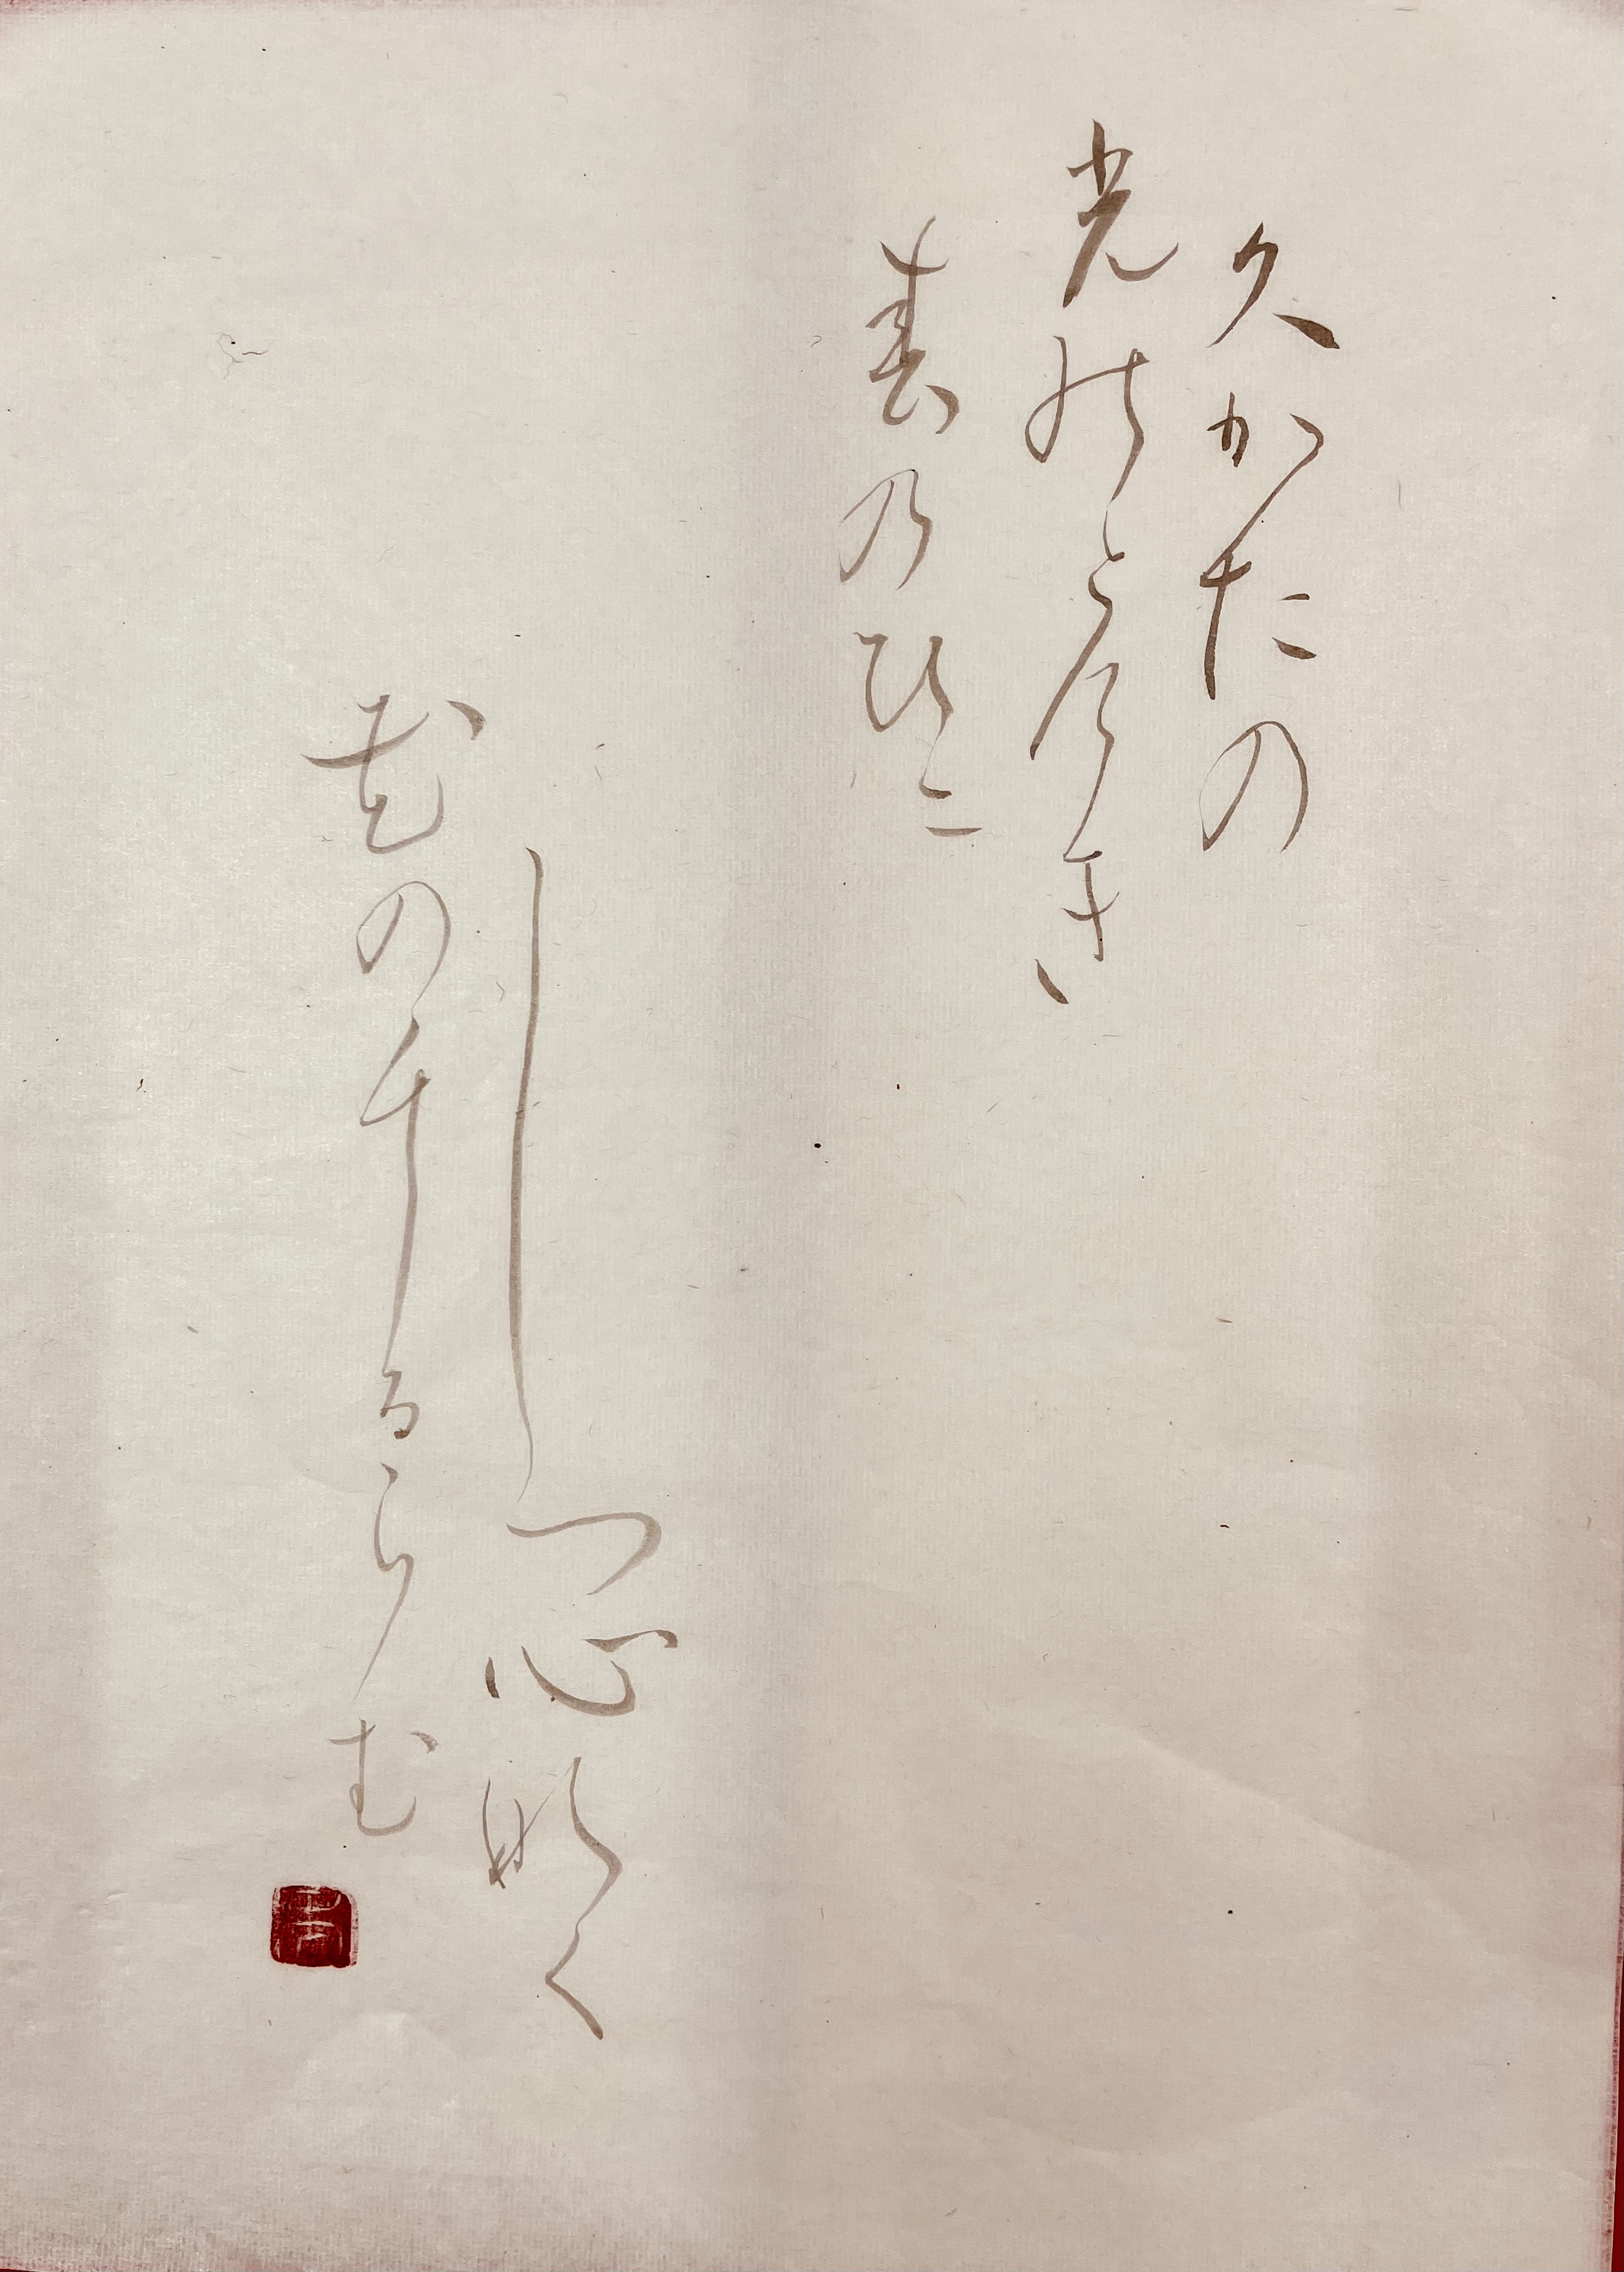 久かたの
光能とけき
春乃ひに
しつ心那く
花のちるらむ